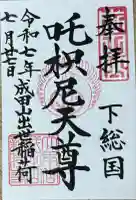 奉拝
下総国
吒枳尼天尊
成田出世稲荷
令和七年
七月廿七日